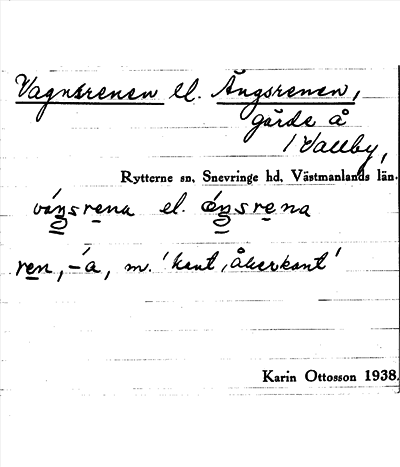 Vagnsrenen el. Ängsrenen,
gärde å
Vallby,
Rytterne sn, Snevringe hd, Västmanlands län.
váŋsrena el. éŋsrena
ren, -a, m. 'kant, åkerkant'
Karin Ottosson 1938.